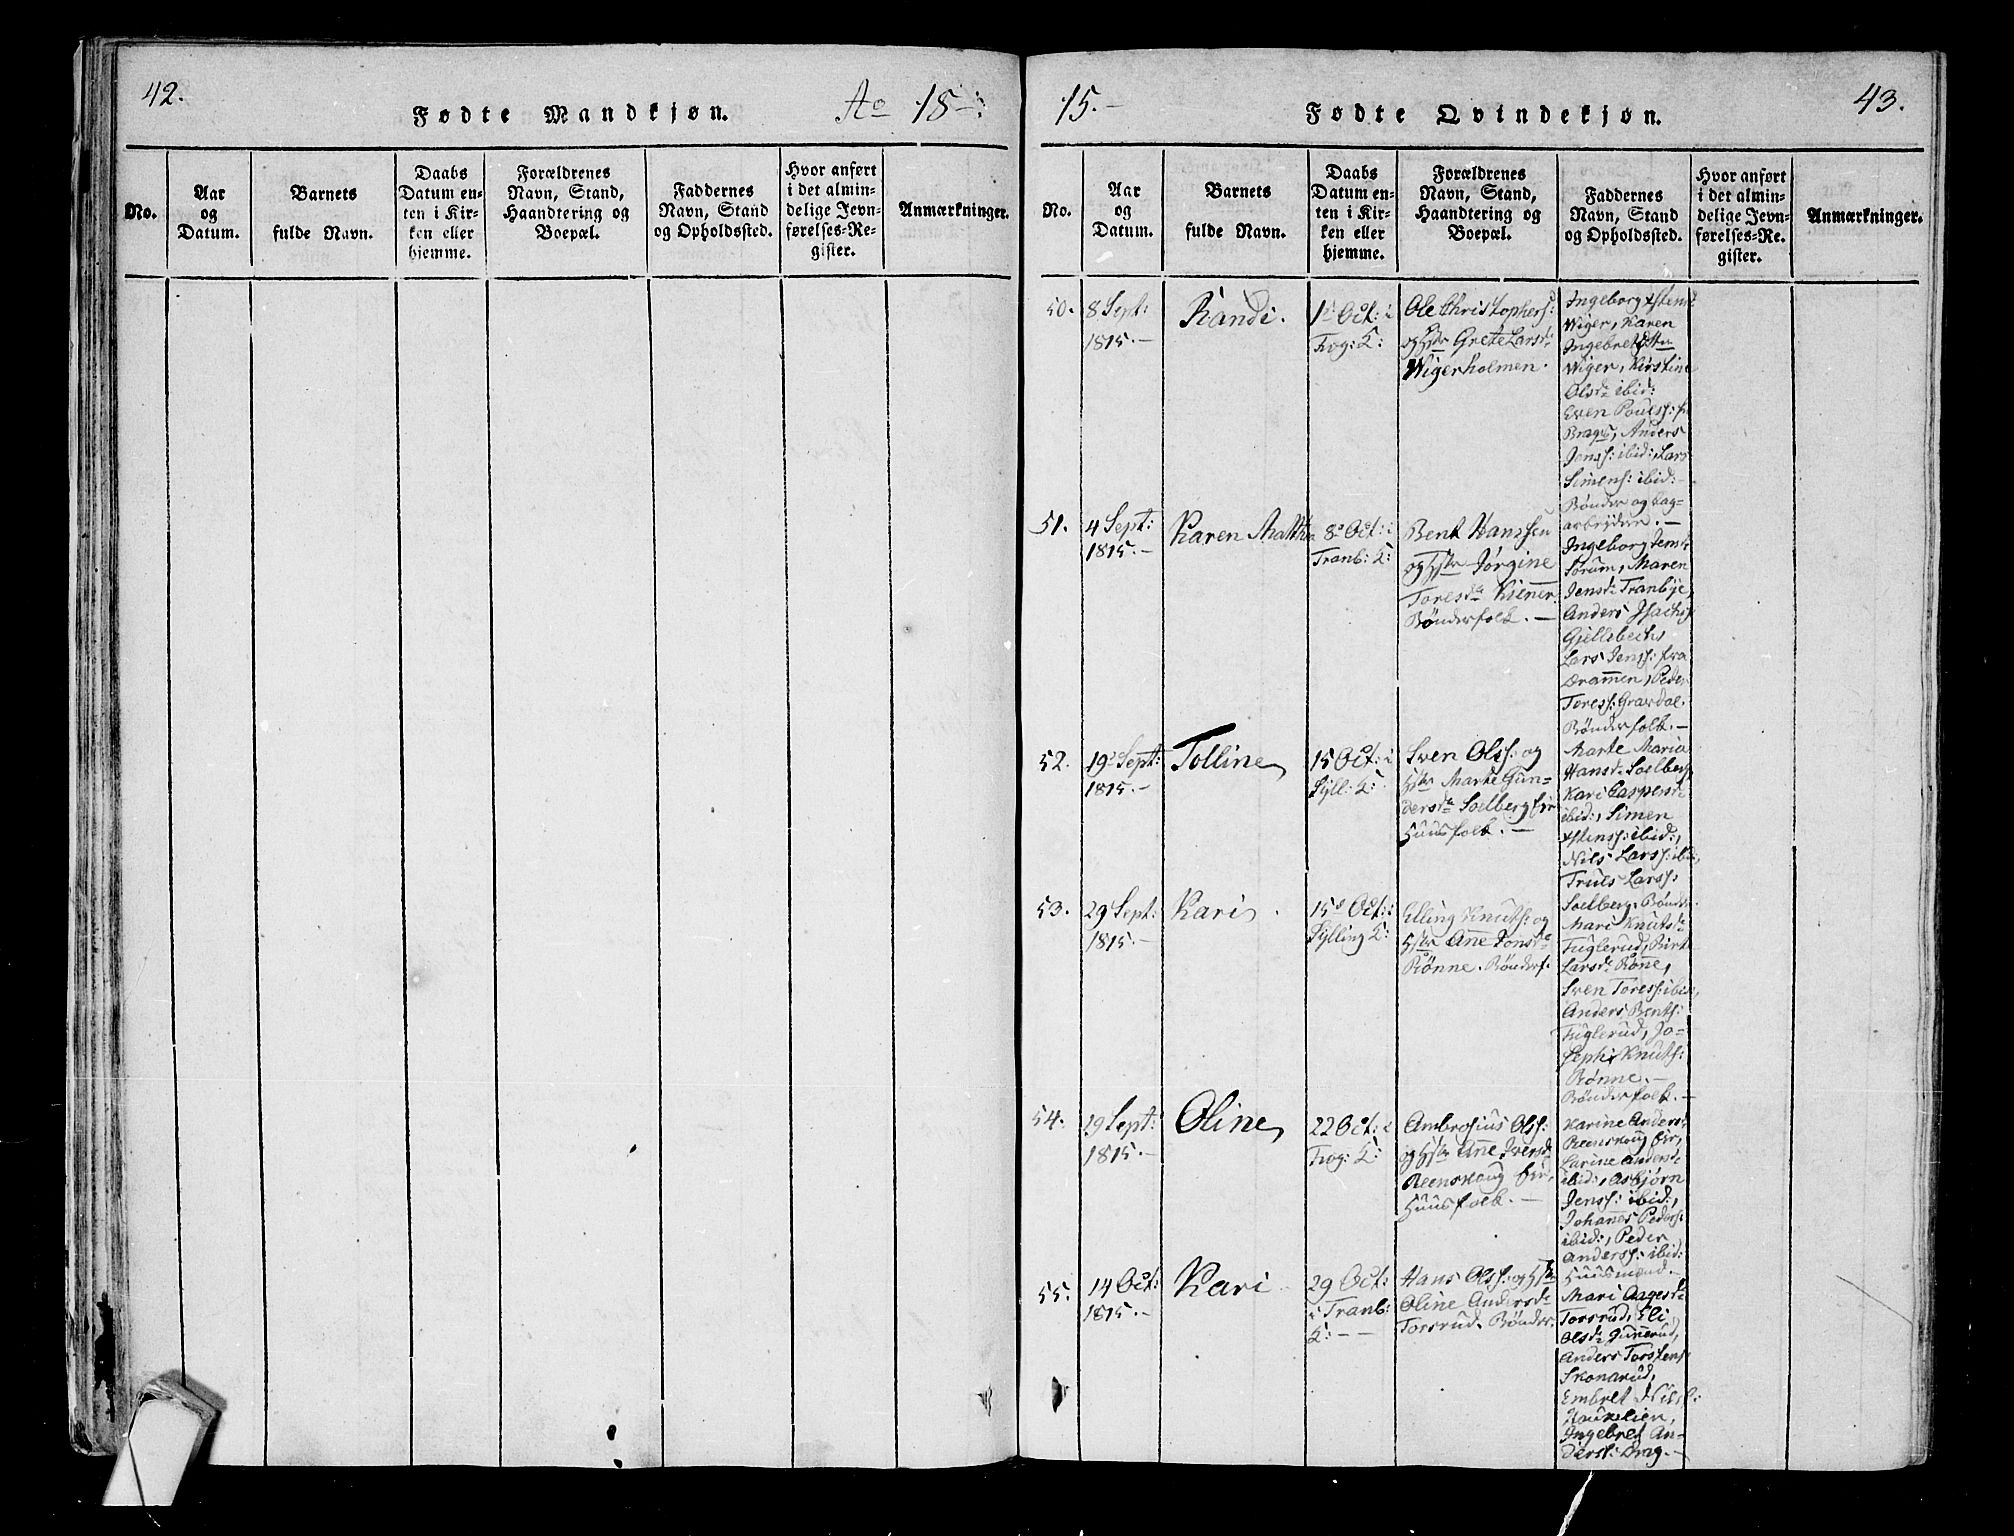 42.
Fødte Mandkjøn.
Ao 18
No.
Aar
og
Datum.
Barnets
fulde Navn.
Daabs
Datum en-
ten i Kir-
ken eller
hjemme.
Forældrenes
Navn, Stand,
Haandtering og
Boepæl.
Faddernes
Navn, Stand
og Opholdssted.
Hvor anført
i det almin-
delige Jevn-
førelses-Re-
gister.
Anmærkninger.
15.-
Fødte Qvindekjøn.
43.
No.
Aar
og
Datum.
Barnets
fulde Navn.
Daabs
Datum en-
ten i Kir-
ken eller
hjemme.
Forældrenes
Navn, Stand,
Haandtering og
Boepæl.
Faddernes
Navn, Stand
og Opholdssted.
Hvor anført
i det almin-
delige Jevn-
førelses-Re.
gister.
Anmærkninger.
50.
8 Sept:
1815.-
Randi.
1s Oct: i
Frog: K:
Ole Christophers:
og Hstr Grete Larsd:
Wigerholmen.
Ingeborg
Wiger, Karen
Ingebretsdtr
Wiger, Kirstine
Olsd: ibid:
Even Pouels: fr
Brag, Anders
Jons: ibid:, Lars
Simens: ibid:-
Bønder og Dag-
arbejdere.-
51.
4 Sept:
1815.-
Karen Malthe
8s Oct: i
Tranb: K:
Bent Hanssen
og Hstr Jørgine
Toresda Kiener
Bønderfolk.-
Ingeborg Jensd:
Sørum, Maren
Jensd: Tranbye,
Anders Isachs:
Gjellebech,
Lars Jens: fra
Dramen, Peder
Toress: Gravdal.
Bønderfolk.-
52.
19s Sept:
1815.-
Tolline
15 Oct: i
Sÿll: K:
Sven Olss: og
Hstr Marte Gun-
dersda Solberg Eie
Huusfolk.-
Marte Maria
Hansd: Solberg,
Kari Caspersd:
ibid:, Simen
Østenss: ibid:,
Nils Larss: ibid,
Truls Larss:
Solberg. Bønder.
53.
29 Sept:
1815.-
Kari
15s Oct: i
Sylling K:
Elling Knuts: og
Hstr Anne Jonsda
Rønne. Bønderf.
Mari Knutsd:
Fuglerud, Birte
Larsd: Rønne,
Sven Toress: ibid,
Anders Bents:
Fuglerud, Jo-
seph Knuts:
Rønne.-
Bønderfolk.-
54.
19 Sept:
1815.-
Oline
22 Oct: i
Frog: K:
Ambrosius Olss:
og Hstr Anne Iversd:
Reenskoug Eie,
Huusfolk.-
Karine Andersd:
Reenskoug Eie,
Larine Andersd:
ibid:, Asbjørn
Jenss: ibid:,
Johannes Peders:
ibid:, Peder
Anderss: ibid:
Huusmænd.-
55.
14 Oct:
1815.-
Kari
29 Oct:
i Tranb:
K:--
Hans Olss: og Hstr
Oline Andersda
Torsrud. Bønder.
Mari Aagesd:
Torsrud, Eli
Olsd: Gunerud,
Anders Torstens:
Skonarud,
Embret Nilss:
Houkelien,
Ingebret An-
derss: Drag.-